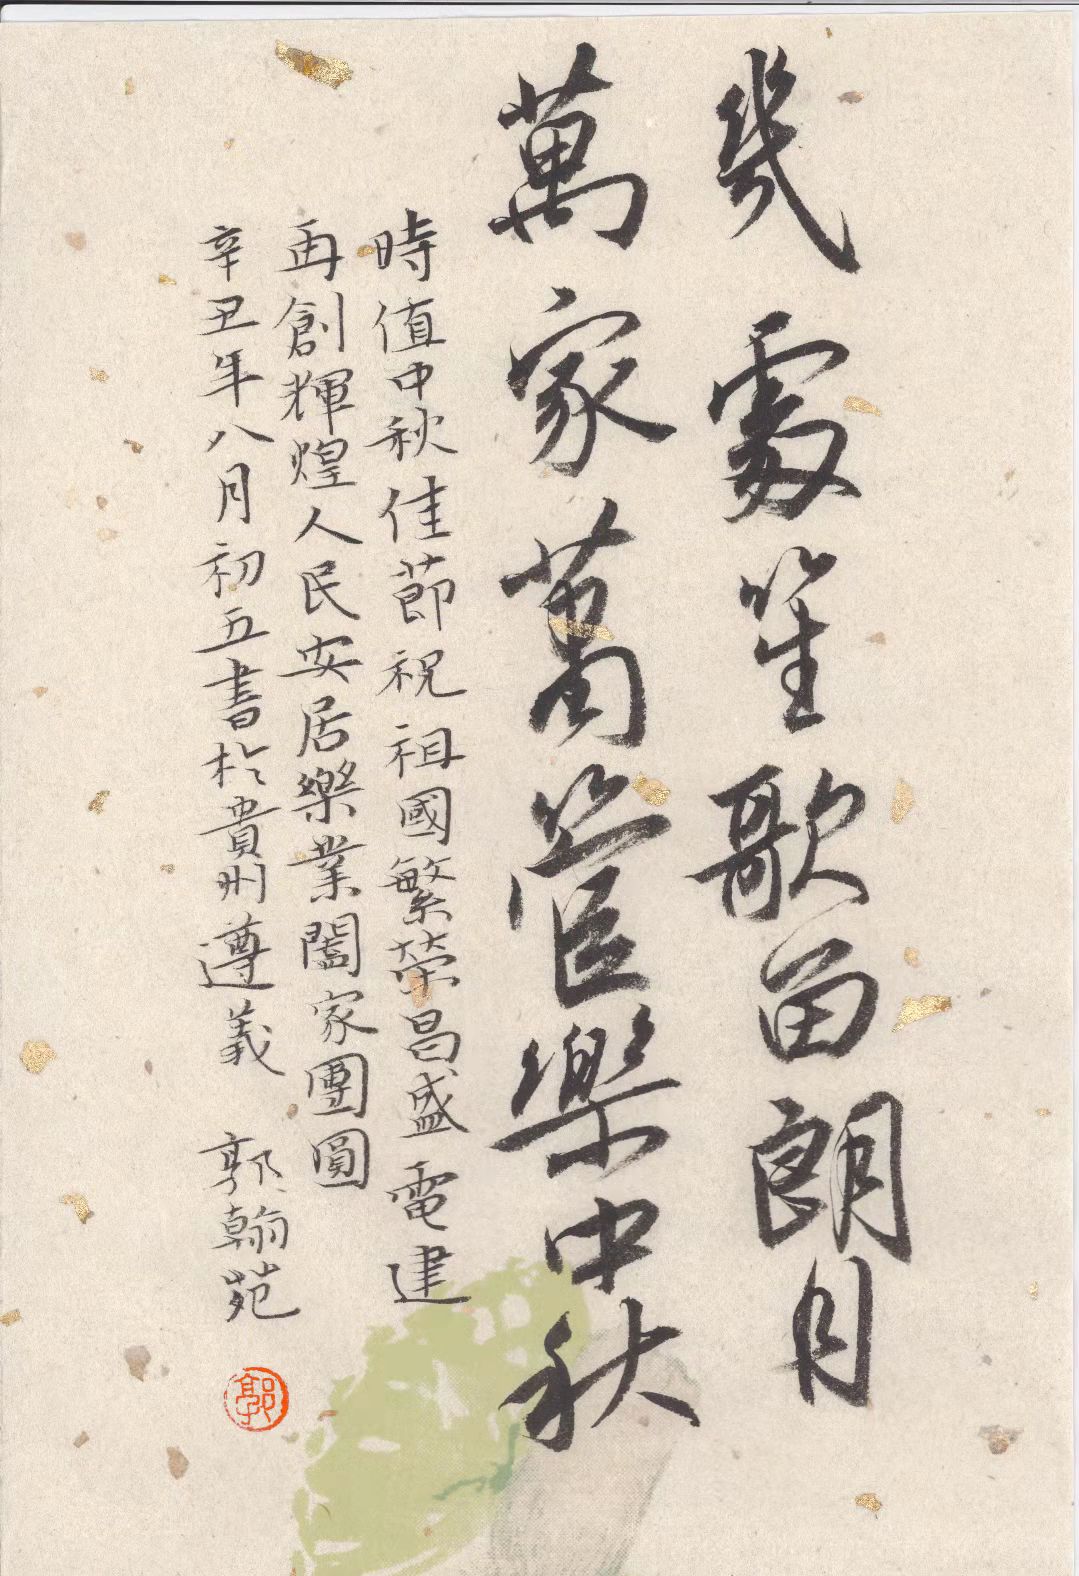 幾處笙歌留朗月
萬家蕭管樂中秋
時值中秋佳節祝祖國繁榮昌盛電建
再創輝煌人民安居樂業闔家團圓
辛丑年八月初五書於貴州遵義 郭翰苑
郭